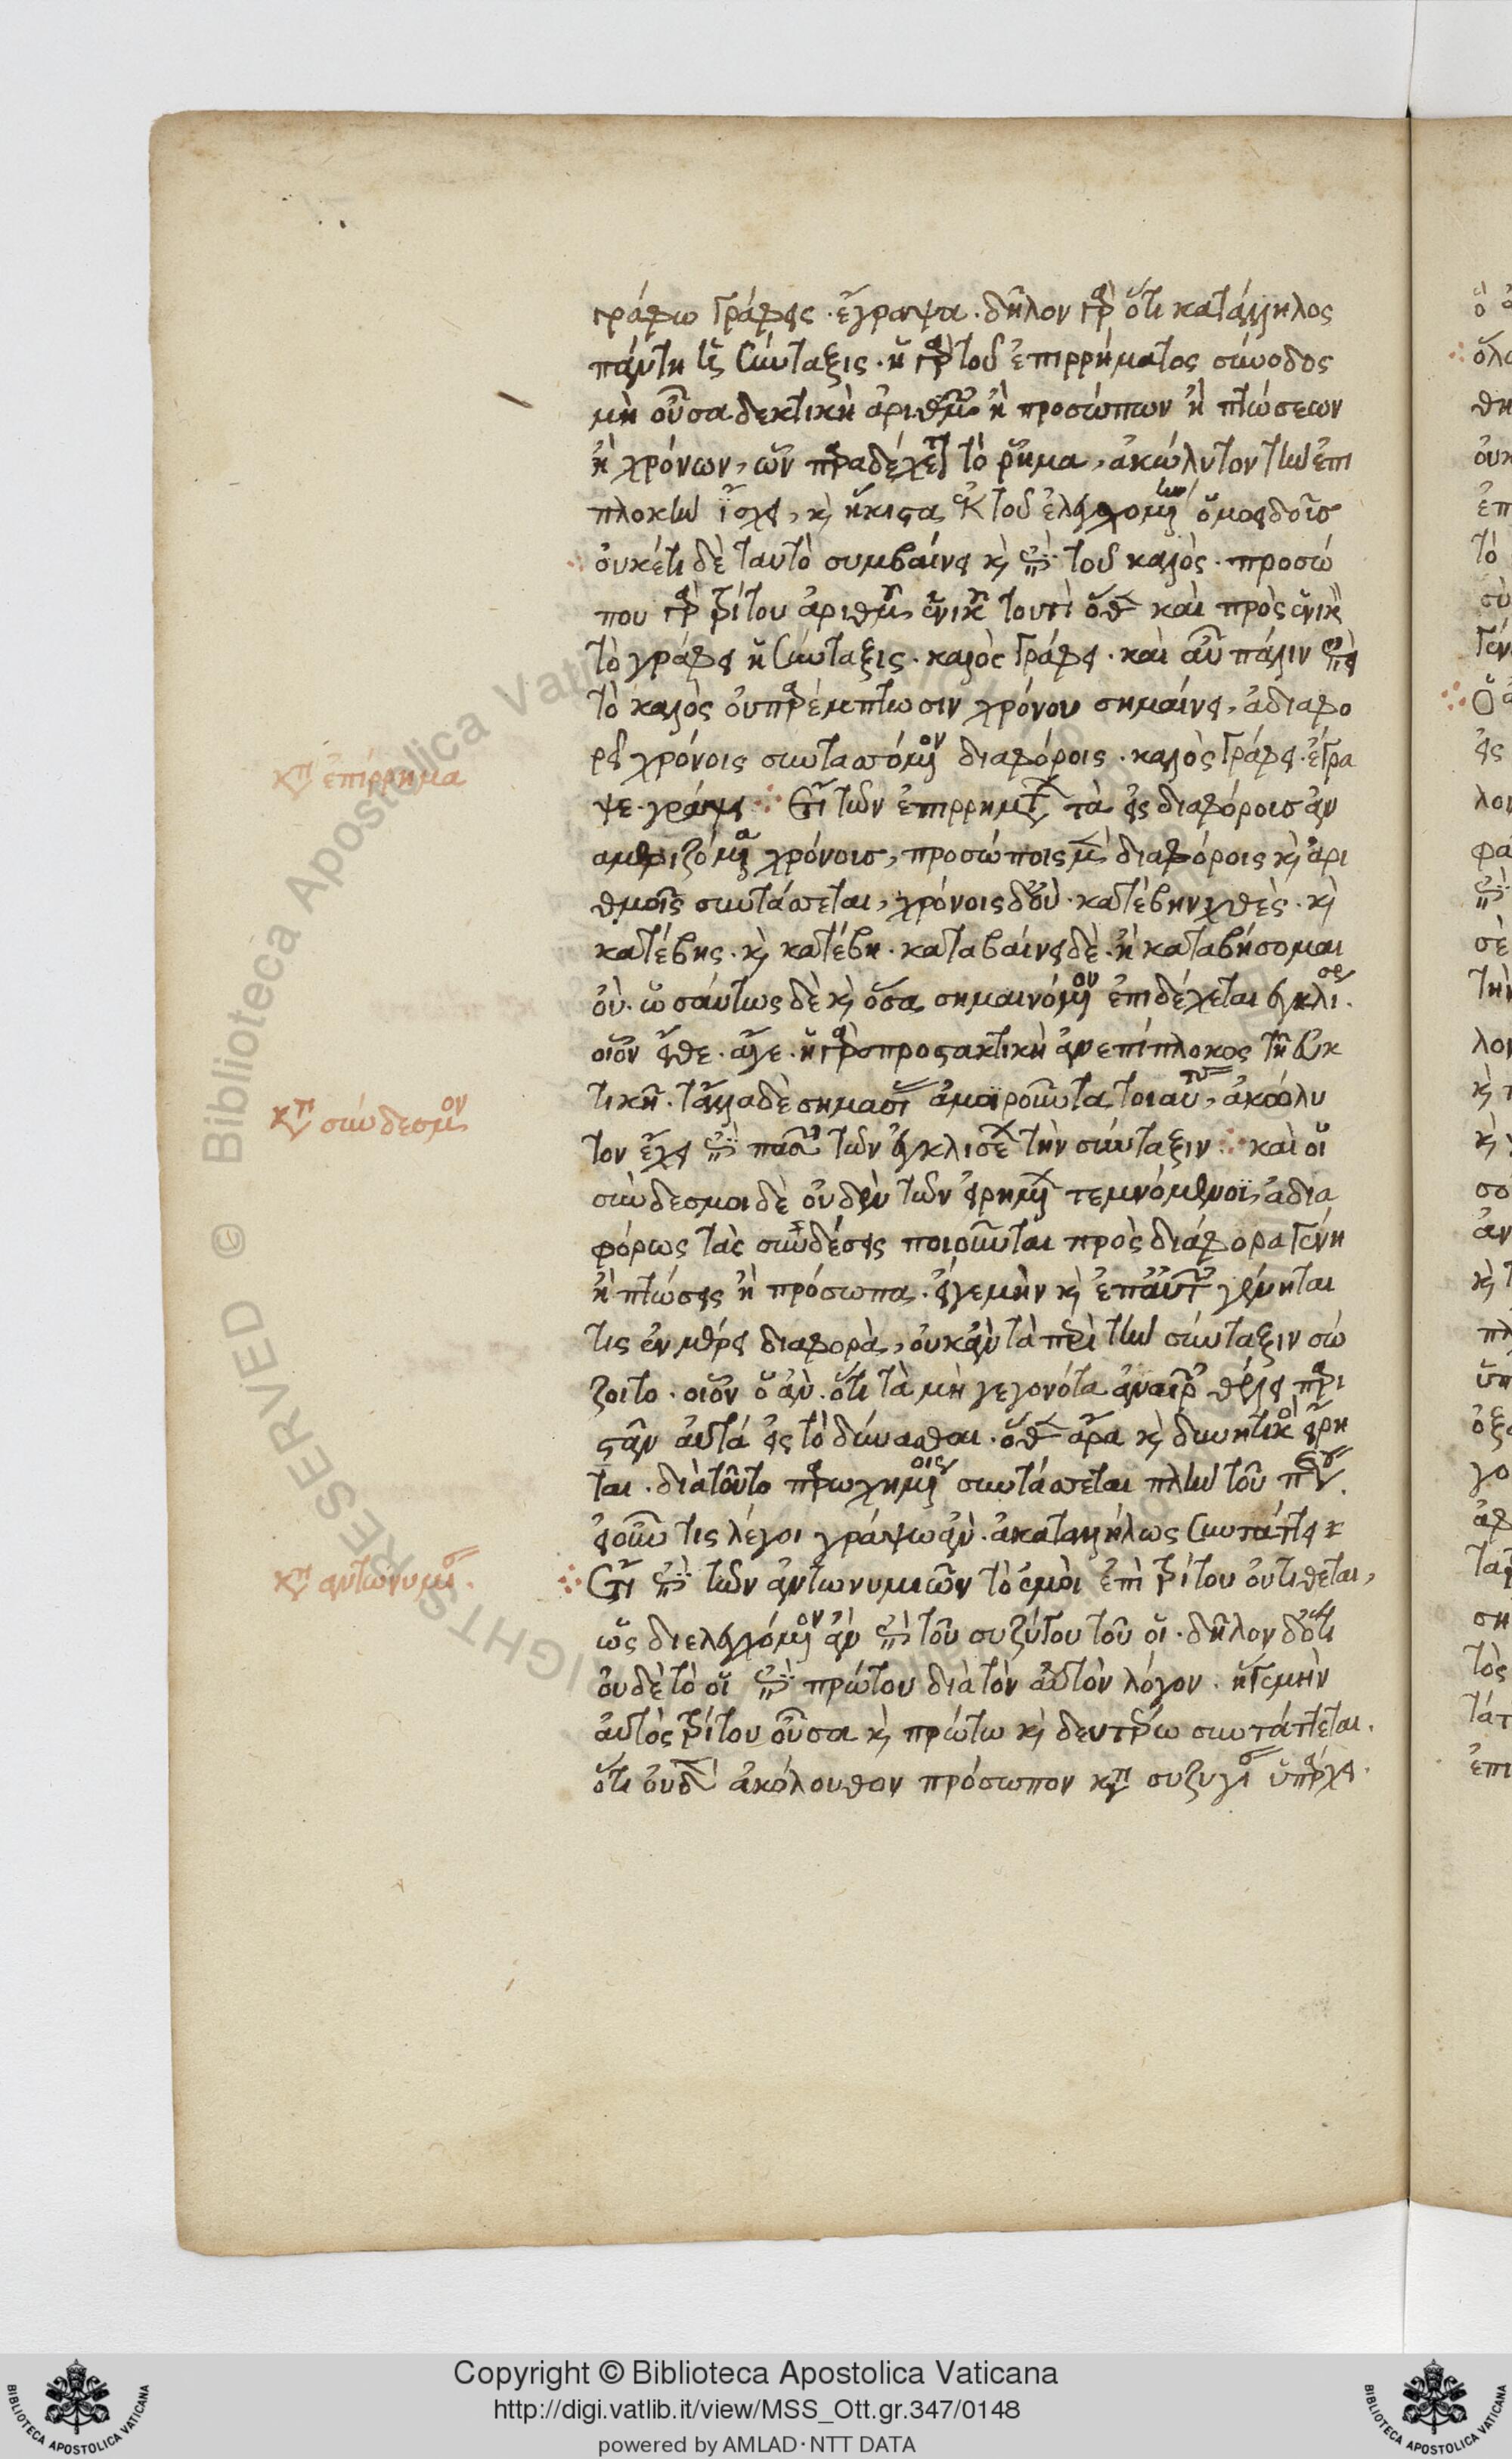 γράφω γράφεις · ἔγραψα · δῆλον γὰρ ὅτι κατάλληλος
πάντη τίς σύνταξις · ἡ γὰρ τοῦ ἐπιρρήματος σύνοδος
μὴ οὖσα δεκτικὴ ἀριθμῶν ἢ προσώπων ἢ πτώσεων
ἢ χρόνων, ὧν παραδέχεται τὸ ῥῆμα, ἀκώλυτον τὴν ἐπι
πλοκὴν ἴσχει, καὶ ἥκιστα ἐκ τοῦ ἐλεγχομένην
οὐκέτι δὲ ταυτὸ συμβαίνει καὶ ἐπὶ τοῦ καλὸς · προσώ
που γὰρ τρίτου ἀριθμοῦ ἑνικοῦ τουτὶ ὅθεν καὶ πρὸς ἑνικὸν
τὸ γράφει ἡ σύνταξις · καλὸς γράφει · καὶ αὖ πάλιν ἐπεὶ
τὸ καλὸς οὐ παρέμπτωσιν χρόνου σημαίνει, ἀδιαφο
ρεῖ χρόνοις συντασσόμενον διαφόροις · καλὸς γράφει · ἔγρα
ψε · γράψει ἔτι τῶν ἐπιρρημάτων τὰ εἰς διαφόροις ἀν
αμεριζόμενα χρόνοις, προσώποις μὲν διαφόροις καὶ ἀρι
θμοῖς συντάσσεται, χρόνοις δ' οὔ · κατέβην χθὲς · καὶ
κατέβης · καὶ κατέβη · καταβαίνει δὲ · ἢ καταβήσομαι
οὐ · ὡσαύτως δὲ καὶ ὅσα σημαινόμενον ἐπιδέχεται ἐγκλίσεως ·
οἷον εἴθε · ἄγε · ἡ γὰρ προστακτικὴ ἀνεπίπλοκος τῇ εὐκ
τικῇ · τἄλλα δὲ σημασίας ἀμοιροῦντα τοιαύτης, ἀκόλυ
τον ἔχει ἐπὶ πασῶν τῶν ἐγκλίσεων τὴν σύνταξιν καὶ οἱ
σύνδεσμοι δὲ οὐδὲν τῶν εἰρημένων τεμνόμενοι, ἀδια
φόρως τὰς συνδέσεις ποιοῦνται πρὸς διάφορα γένη
ἢ πτώσεις ἢ πρόσωπα · εἴγε μὴν καὶ ἐπ' αὐτῶν γένηται
τις ἐν μέρει διαφορὰ, οὐκ ἂν τὰ περὶ τὴν σύνταξιν σώ
ζοιτο · οἷον ὁ ἂν · ὅτι τὰ μὴ γεγονότα ἀναιρῶν θέλει παρι
στᾶν αὐτὰ εἰς τὸ δύνασθαι · ὅθεν ἄρα καὶ δυνητικὸς εἴρη
ται · διὰ τοῦτο παρωχημένοις συντάσσεται πλὴν τοῦ
εἰ οὖν τις λέγοι γράψω ἂν · ἀκαταλλήλως συντάττει
ἔτι ἐπὶ τῶν ἀντωνυμιῶν τὸ ἐμοὶ ἐπὶ τρίτου οὐ τίθεται,
ὡς διελεγχόμενον ἂν ἐπὶ τοῦ συζύγου τοῦ οἷ · δῆλον δ' ὅτι
οὐδὲ τὸ οἷ ἐπὶ πρώτου διὰ τὸν αὐτὸν λόγον · ἥ γε μὴν
αὐτὸς τρίτου οὖσα καὶ πρώτω καὶ δευτέρω συντάττεται ·
ὅτι οὐδὲν ἀκόλουθον πρόσωπον κατὰ συζυγίαν ὑπάρχει ·
κατὰ ἐπίρρημα
κατὰ σύνδεσμον
κατὰ ἀντωνυμίας ·
Biblioteca Apostolica Vaticana
RIGHTS RESERVED ©
Copyright © Biblioteca Apostolica Vaticana
http://digi.vatlib.it/view/MSS_Ott.gr.347/0148
powered by AMLAD · NTT DATA
BIBLIOTECA APOSTOLICA VATICANA
BIBLIOTECA APOSTOLICA VATICANA